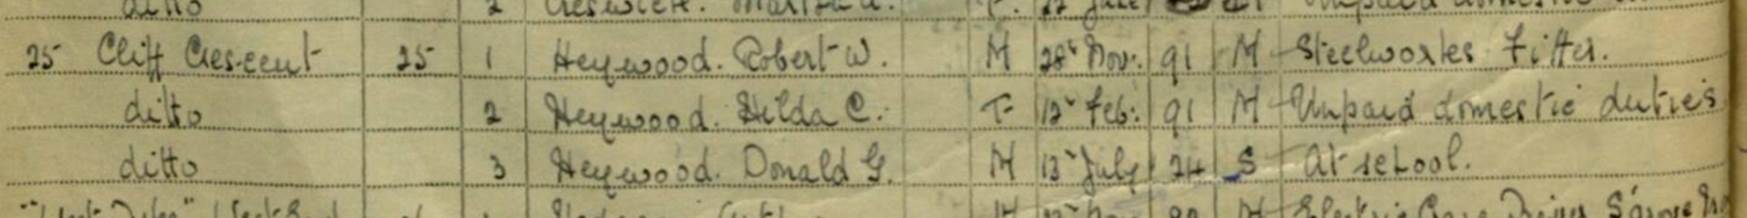 ditto 2
25 Cliff Crescent 25 1 Heywood. Robert W. M 28 Nov. 91 M Steelworks Fitter.
ditto 2 Heywood. Hilda C. F 12 Feb: 91 M Unpaid domestic duties
ditto 3 Heywood. Donald G. M 13 July 24 S At school.